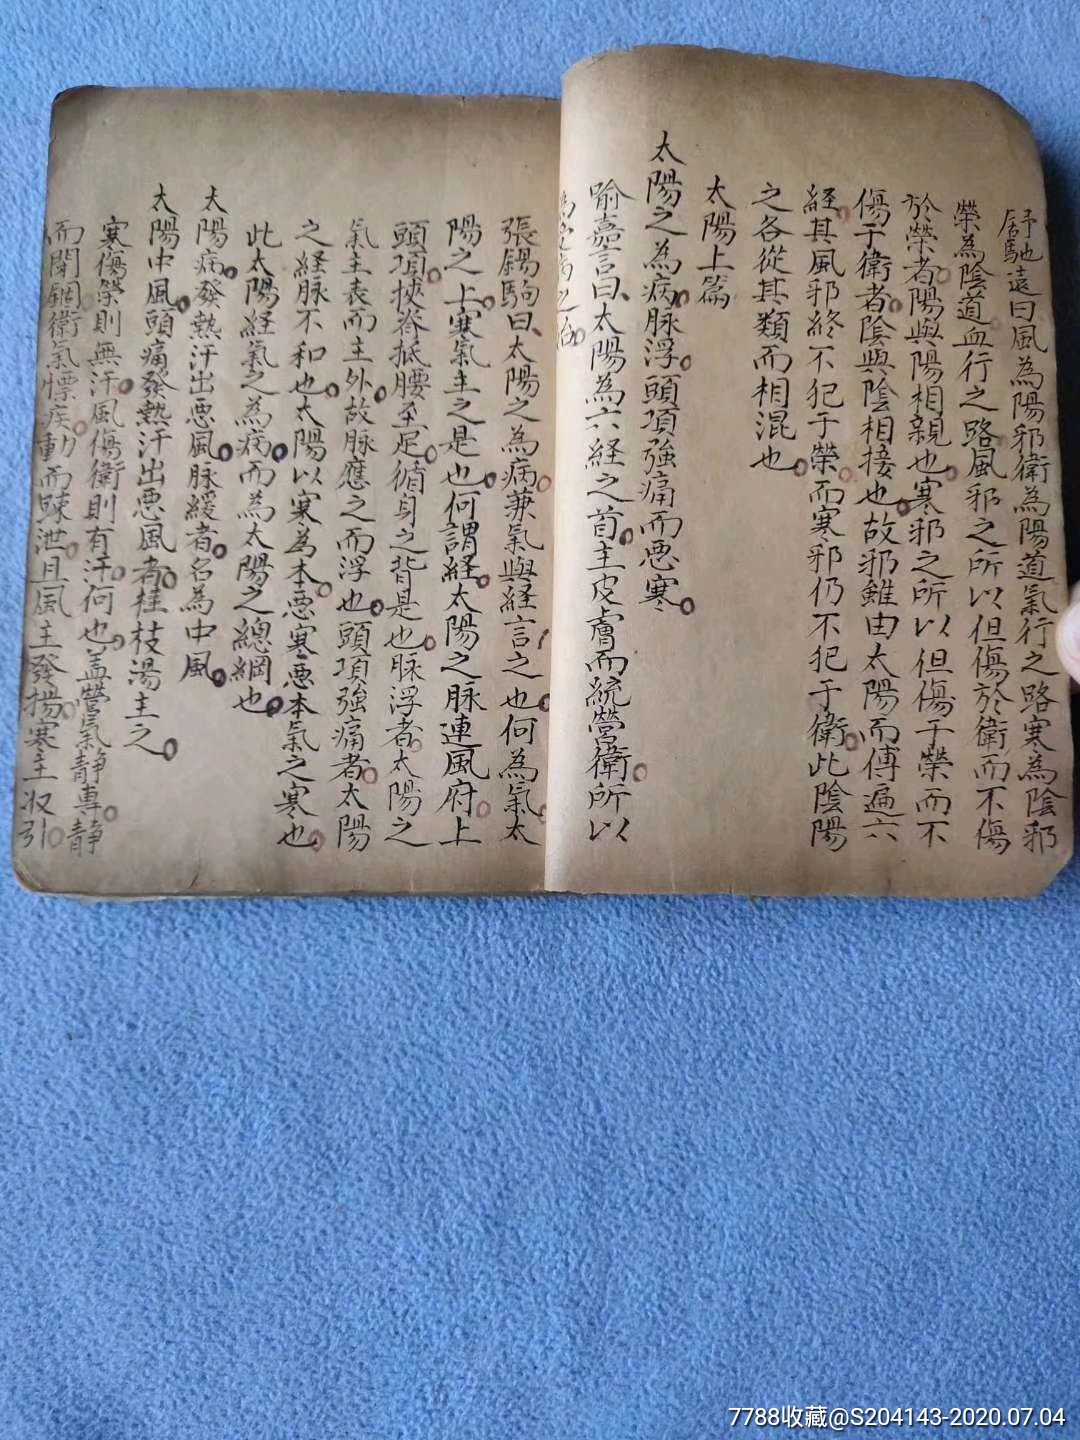 舒馳遠曰風為陽邪衛為陽道氣行之路寒為陰邪
榮為陰道血行之路風邪之所以但傷於衛而不傷
於榮者陽與陽相親也寒邪之所以但傷于榮而不
傷于衛者陰與陰相接也故邪雖由太陽而傳遍六
經其風邪終不犯于榮而寒邪仍不犯于衛此陰陽
之各從其類而相混也
太陽上篇
太陽之為病脉浮頭項強痛而悪寒
喻嘉言曰太陽為六経之首主皮膚而統營衛所以
為受病之始
張錫駒曰太陽之為病兼氣與経言之也何為氣太
陽之上寒氣主之是也何謂経太陽之脉連風府上
頭項挾脊抵腰至足循身之背是也脉浮者太陽之
氣主表而主外故脉應之而浮也頭項強痛者太陽
之経脉不和也太陽以寒為本悪寒悪本氣之寒也
此太陽経氣之為病而為太陽之總綱也
太陽病發熱汗出悪風脉緩者名為中風
太陽中風頭痛發熱汗出悪風者桂枝湯主之
寒傷榮則無汗風傷衛則有汗何也盖營氣靜專靜
而閉錮衛氣慓疾動而疎泄且風主發揚寒主收引
7788收藏@S204143-2020.07.04